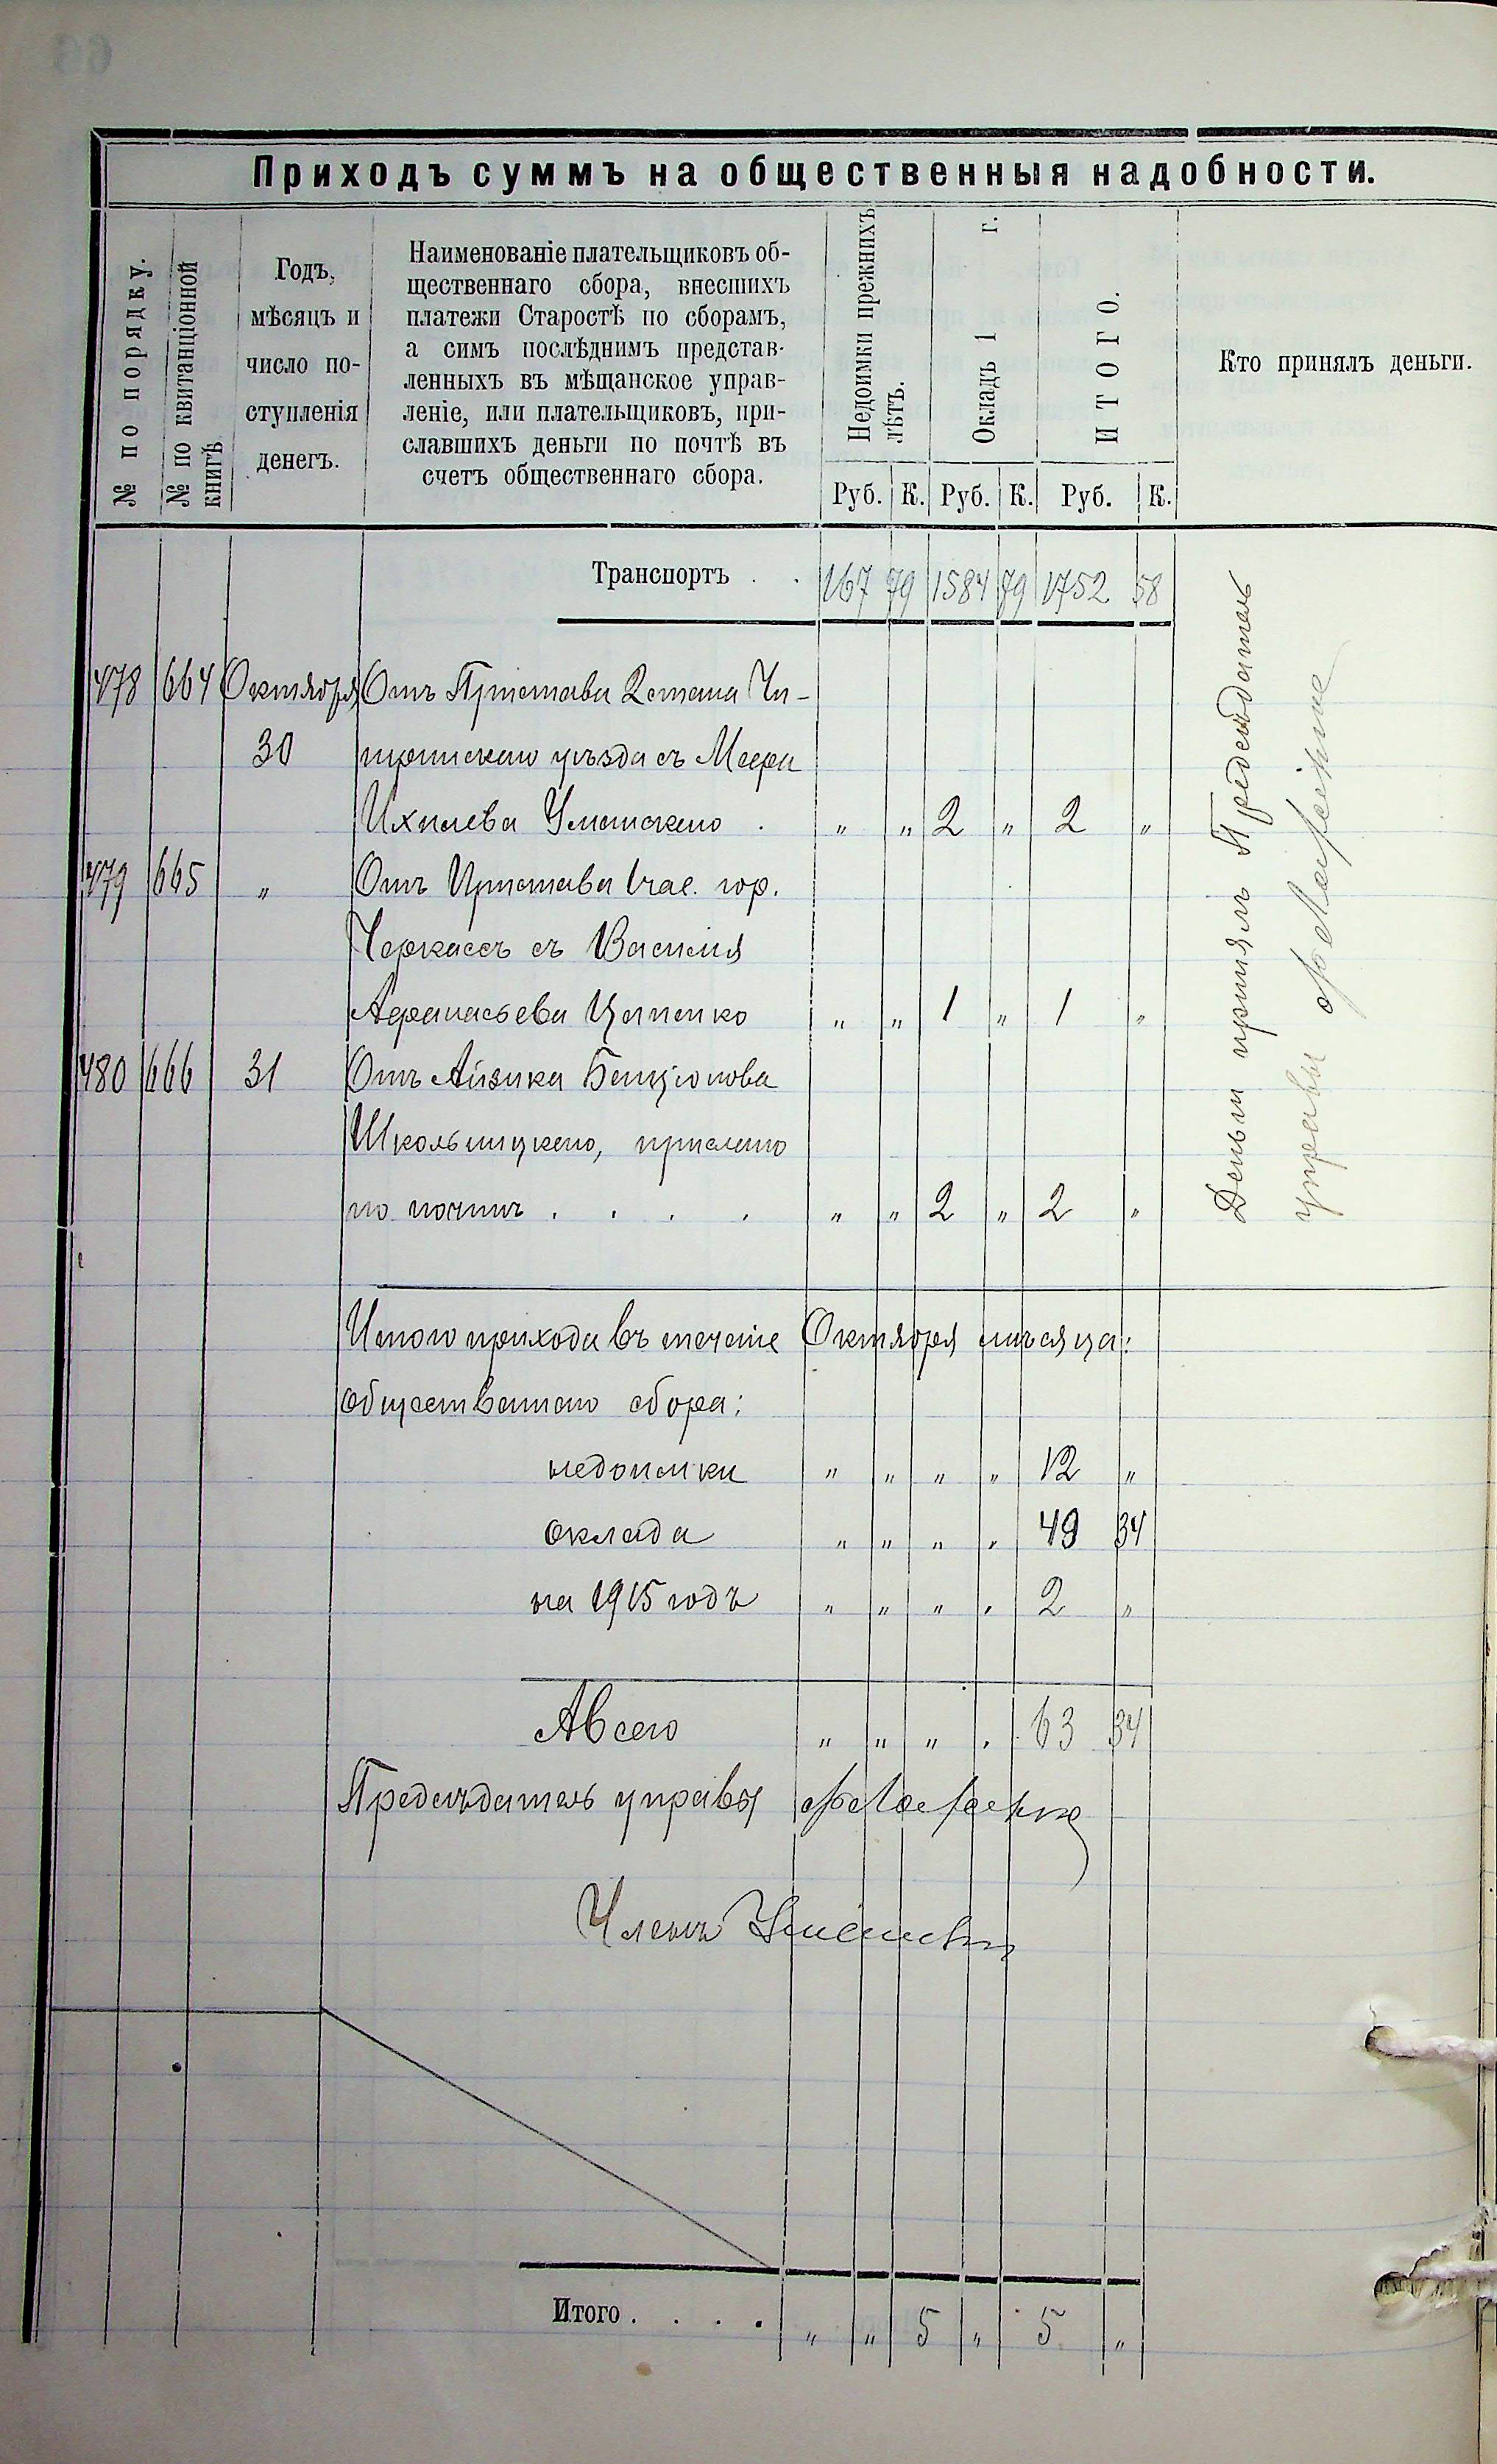 Приходъ суммъ на общественныя надобности.
№ по порядку.
№ по квитанціонной
книгѣ
Годъ,
мѣсяцъ и
число по-
ступленія
денегъ.
Наименованіе плательщиковъ об-
щественнаго сбора, внесшихъ
платежи Старостѣ по сборамъ,
а симъ послѣднимъ представ-
ленныхъ въ мѣщанское управ-
леніе, или плательщиковъ, при-
славшихъ деньги по почтѣ въ
счетъ общественнаго сбора.
Недоимки прежнихъ
лѣтъ.
Окладъ 1 г.
ИТОГО.
Кто принялъ деньги.
Руб. К. Руб. К. Руб. К.
Транспортъ . . 167 79 1584 79 1752 58
478 664 Октября Отъ Пристава 2 стана Чи-
30 гринскаго уѣзда съ Меера
Ихилева Уманскаго . " " 2 " 2 "
479 665 " Отъ Пристава 1 час. гор.
Черкассъ съ Василія
Афанасьева Цыпенко " " 1 " 1 "
480 666 31 Отъ Айзика Бенціонова
Школьницкаго, прислано
по почтѣ . . . . " " 2 " 2 "
Деньги принялъ Предсѣдатель
управы
Итого прихода въ теченіе Октября мѣсяца:
общественнаго сбора:
недоимки " " " " 12 "
оклада " " " " 49 34
на 1915 годъ " " " " 2 "
А всего " " " " 63 34
Предсѣдатель управы
Членъ
Итого . . . . " " 5 " 5 "